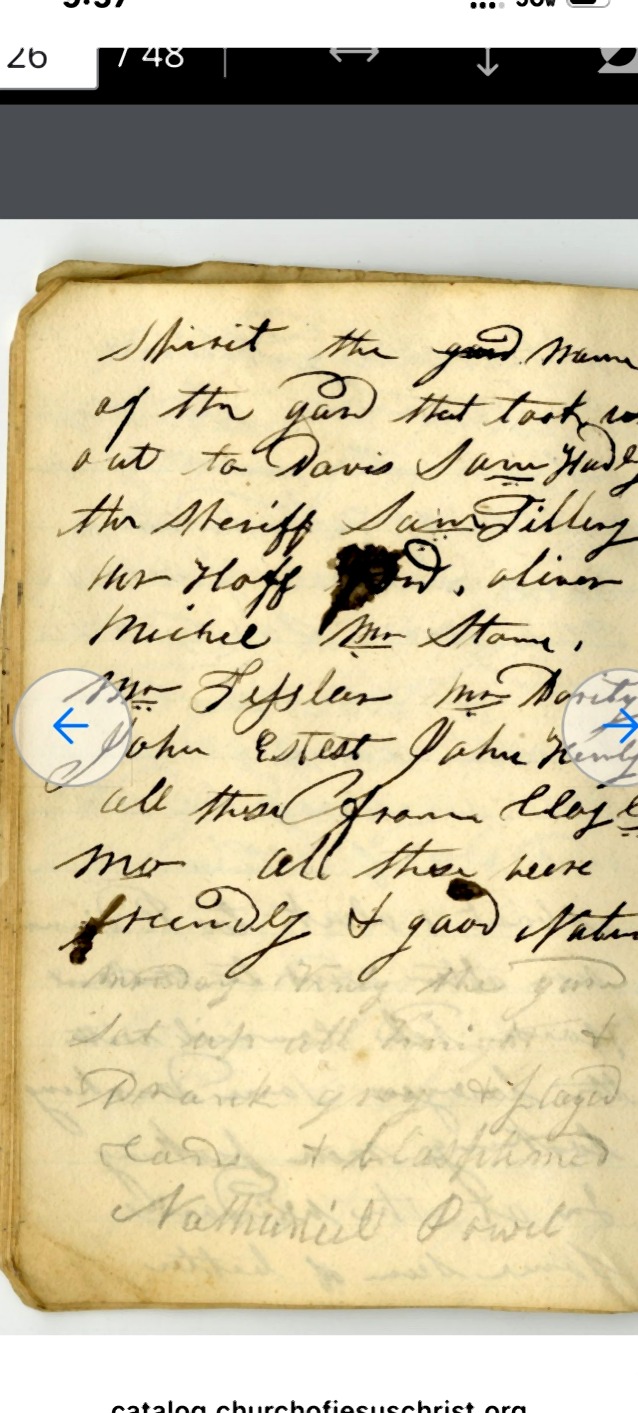 26 / 48
spirit the gard Name
of the gard that took
out to Davis Sam Hadly
the Sheriff Sam Tillery
mr Hoff ord, oliver
Michel Mr Stone,
Mr Fissler Mr Dority
John Estest John
all these from Clay
mo all these were
freendly & good Natu
the gard
Set up all knight &
Drank grog & played
card & blasphmed
Nathaniel Powel
catalog.churchofjesuschrist.org